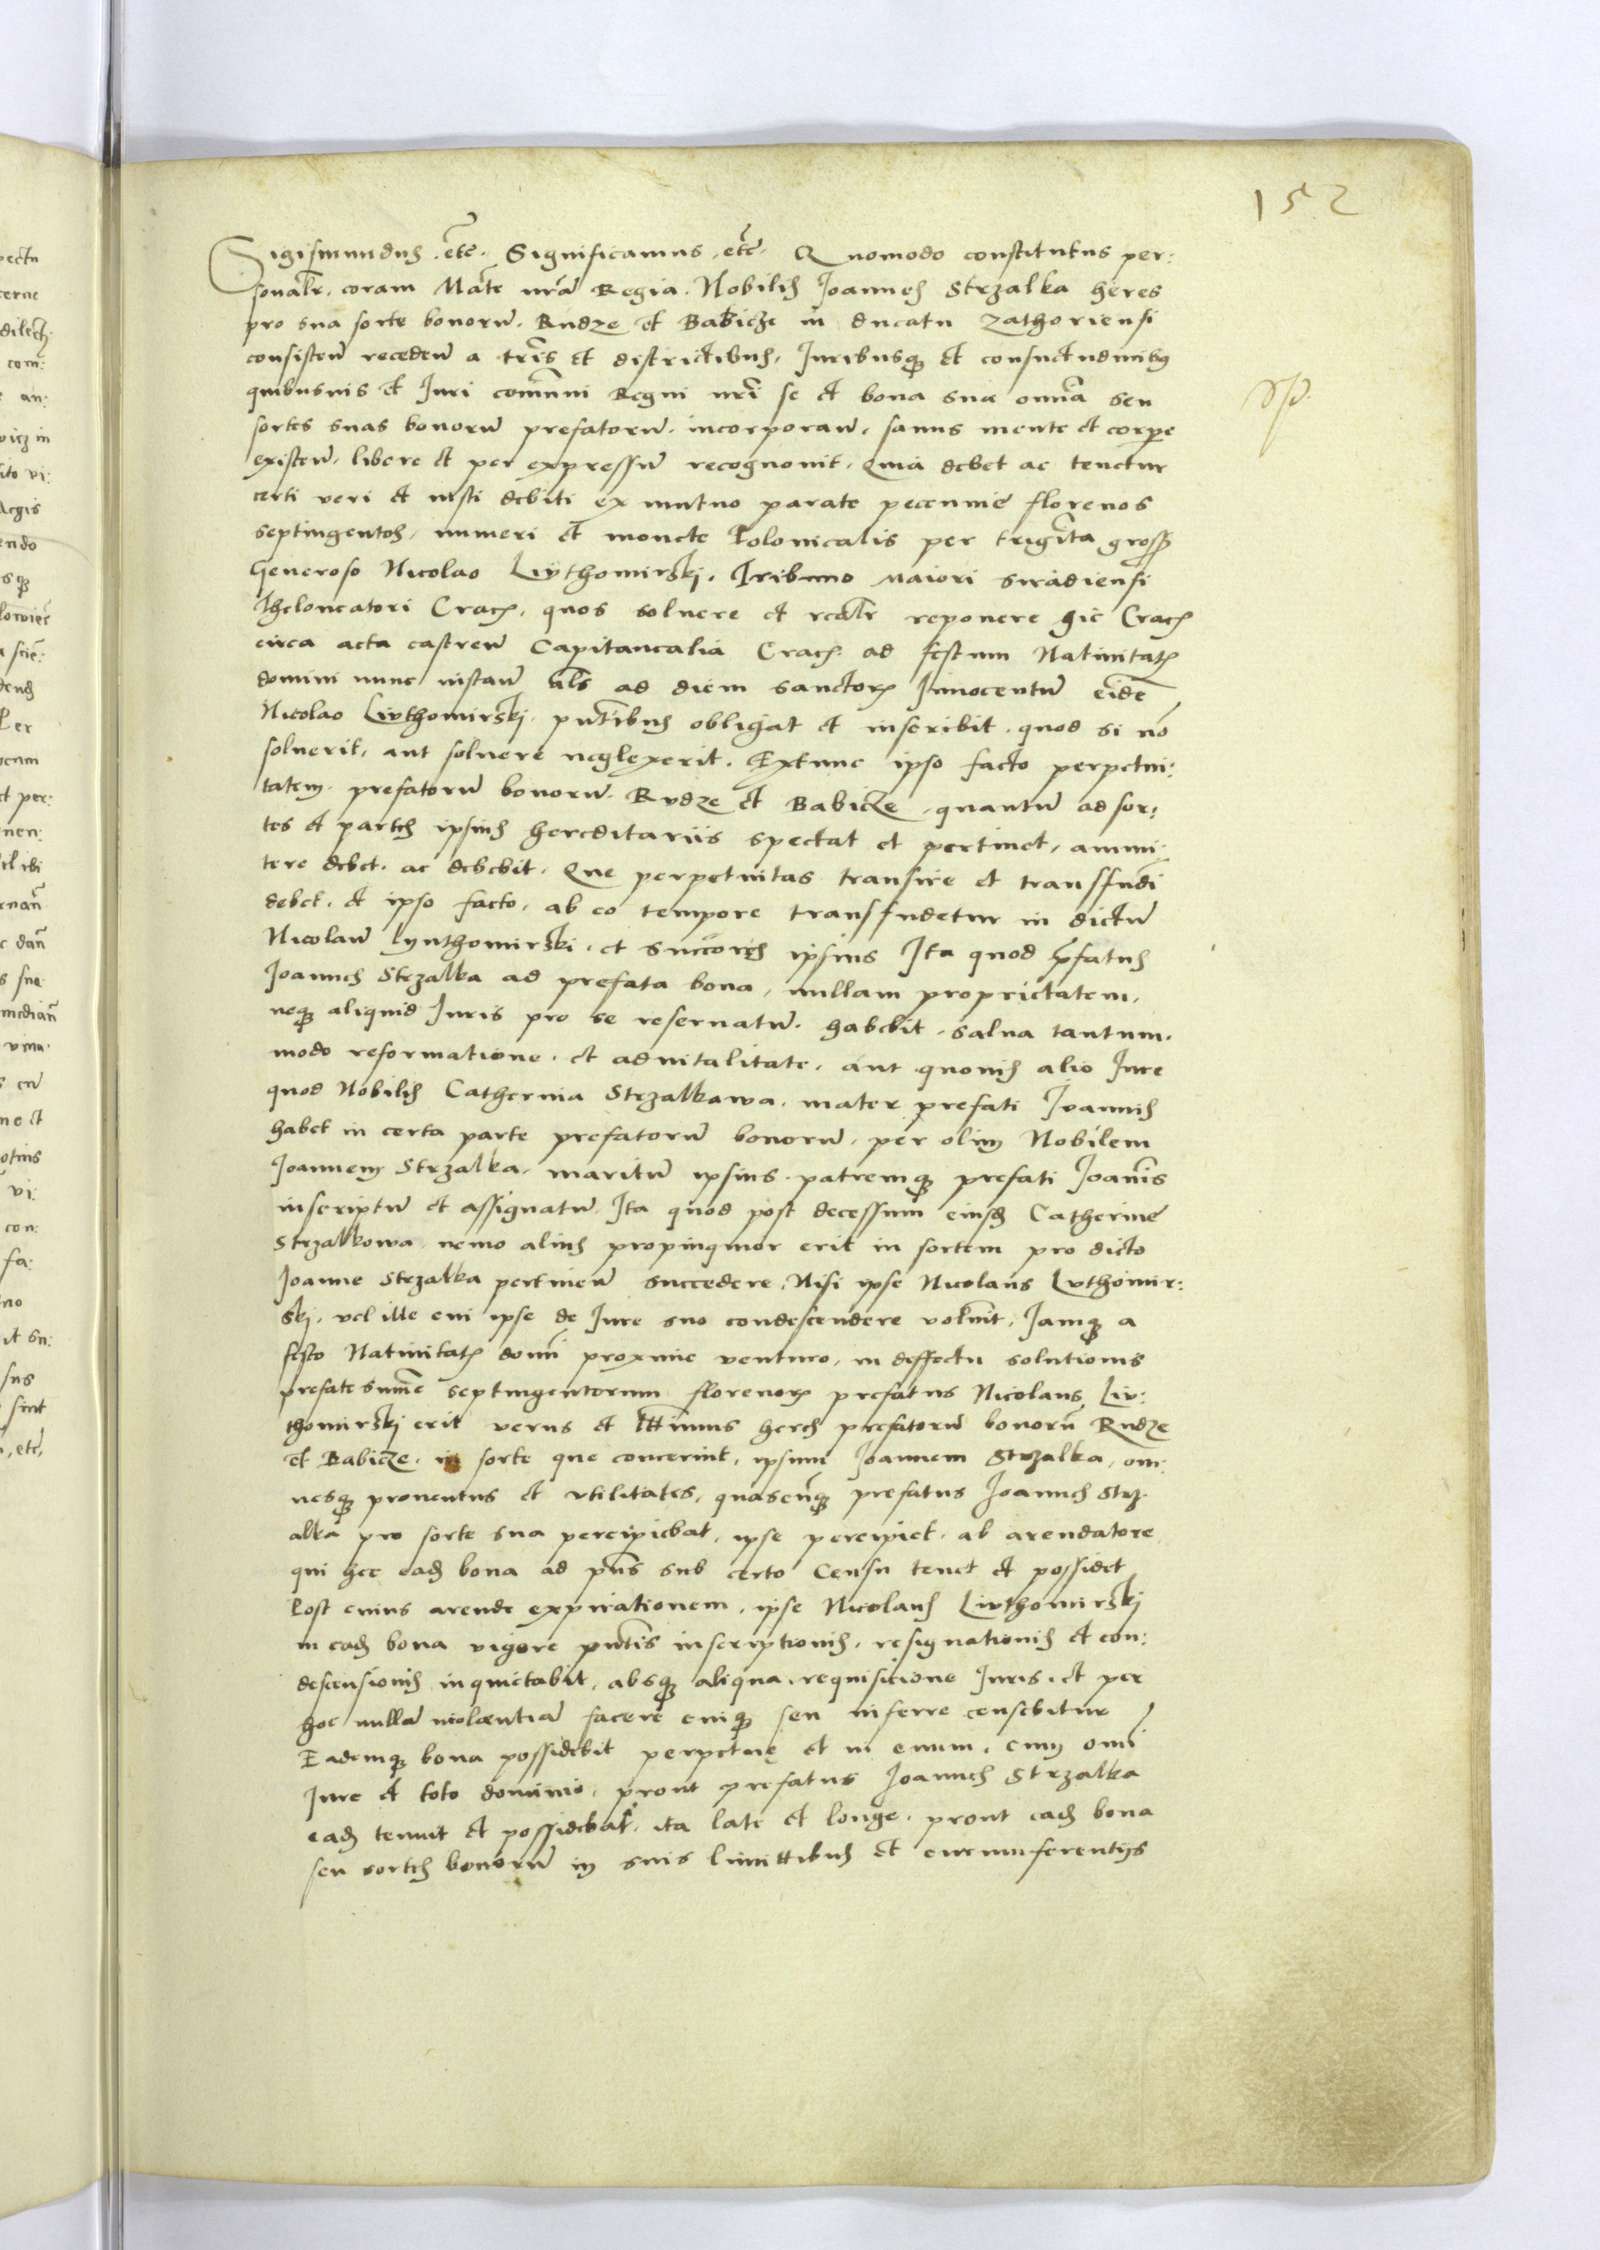 152
Sigismundus, etc. Significamus, etc. Quomodo constitutus per:
sonalr, coram Mate nra Regia. Nobilis Joannes Strzalka heres
pro sua sorte bonoru. Rudze et Babicze in ducatu Zathoriensi
consisten receden a tris et districtibus, Juribusq et consuetudinibus
quibusuis et Juri comuni Regni nri se et bona sua omnia seu
sortes suas bonoru prefatoru. incorporan, sanus mente et corpe
existen, libere et per expressu recognouit, Quia debet ac tenetur
certi veri et iusti debiti ex mutuo parate peccunie florenos
septingentos, numeri et monete Polonicalis per triginta gross
Generoso Nicolao Lijthomirskj. Tribuno Maiori siradiensi
Theloneatori Crac, quos soluere et realr reponere hic Crac
circa acta castren Capitanealia Crac. ad festum Natiuitatis
domini nunc instan als ad diem sanctor Innocentu eide
Nicolao Livthomirskj. pntibus obligat et inscribit. quod si no
soluerit, aut soluere neglexerit. Extunc ipso facto perpetui:
tatem prefatoru bonoru. Rudze et Babicze, quantu ad sor:
tes et partes ipsius hereditariis spectat et pertinet, ammi:
tere debet. ac debebit. Que perpetuitas transire et transfundi
debet, et ipso facto, ab eo tempore transfundetur in dictu
Nicolau Lynthomirski, et succores ipsius Ita quod pfatus
Joannes Strzalka ad prefata bona, nullam proprietatem,
neq aliquid Juris pro se reseruatu. habebit. salua tantum.
modo reformatione. et aduitalitate, aut quouis alio Jure
quod Nobilis Catherina Strzalkawa. mater prefati Joannis
habet in certa parte prefatoru bonoru, per olim Nobilem
Joannem Strzalka, maritu ipsius patremq prefati Joanis
inscriptu et assignatu. Ita quod post decessum eiusd Catherine
Strzalkowa nemo alius propinquior erit in sortem pro dicto
Joanne Strzalka pertinen succedere. Nisi ipse Nicolaus Lvthomir:
skj. vel ille cui ipse de Jure suo condescendere voluit, Jamq a
festo Natiuitatis domi proxime venturo, in deffectu solutionis
prefate sume septingentorum florenor prefatus Nicolaus Liv:
thomirskj erit verus et lttimus heres prefatoru bonoru Rudze
et Babicze. in sorte que concerint, ipsum Joannem Strzalka, om:
nesq prouentus et vtilitates, quascunq prefatus Joannes Strz.
alka pro sorte sua percipiebat, ipse percipiet. ab arendatore
qui hec ead bona ad pns sub certo Censu tenet et possidet
Post cuius arende expirationem, ipse Nicolaus Livthomirskj
in ead bona vigore pntis inscriptionis, resignationis et con:
descensionis inquietabit, absq aliqua requisicione Juris, et per
hoc nulla uiolentia facere cuiq seu inferre censebitur
Eademq bona possidebit perpetue et in euum, cum omi
Jure et toto dominio, prout prefatus Joannes Strzalka
ead tenuit et possidebat. ita late et longe, prout ead bona
seu sortes bonoru in suis limittibus et circumferentijs